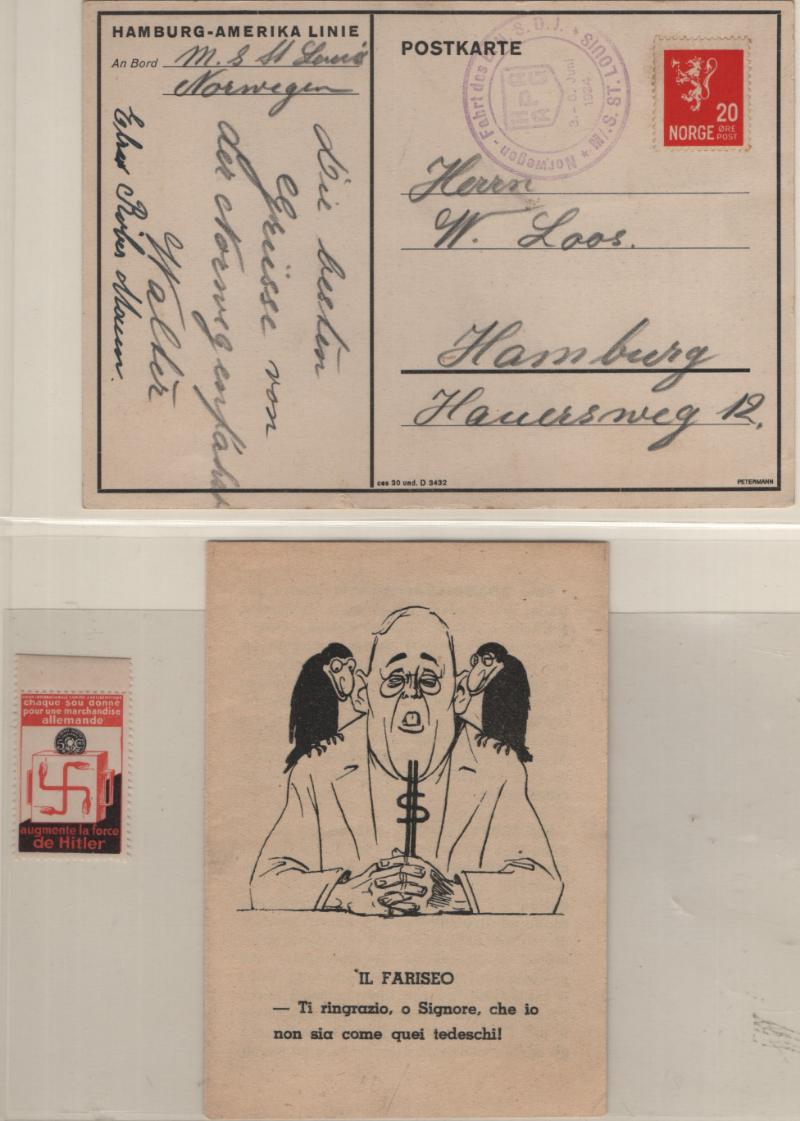 HAMBURG-AMERIKA LINIE
An Bord M. S St Louis
Norwegen
Die besten
Grüsse von
der Norwegenfahrt
Walter
POSTKARTE
M/S. ST. LOUIS * Norwegen - Fahrt des
3.-6. Juni
1934.
NORGE 20 ØRE
POST
Herrn
W. Loos.
Hamburg
Hauersweg 12.
ces 30 und. D 3432
PETERMANN
chaque sou donné
pour une marchandise
allemande
augmente la force
de Hitler
IL FARISEO
— Ti ringrazio, o Signore, che io
non sia come quei tedeschi!